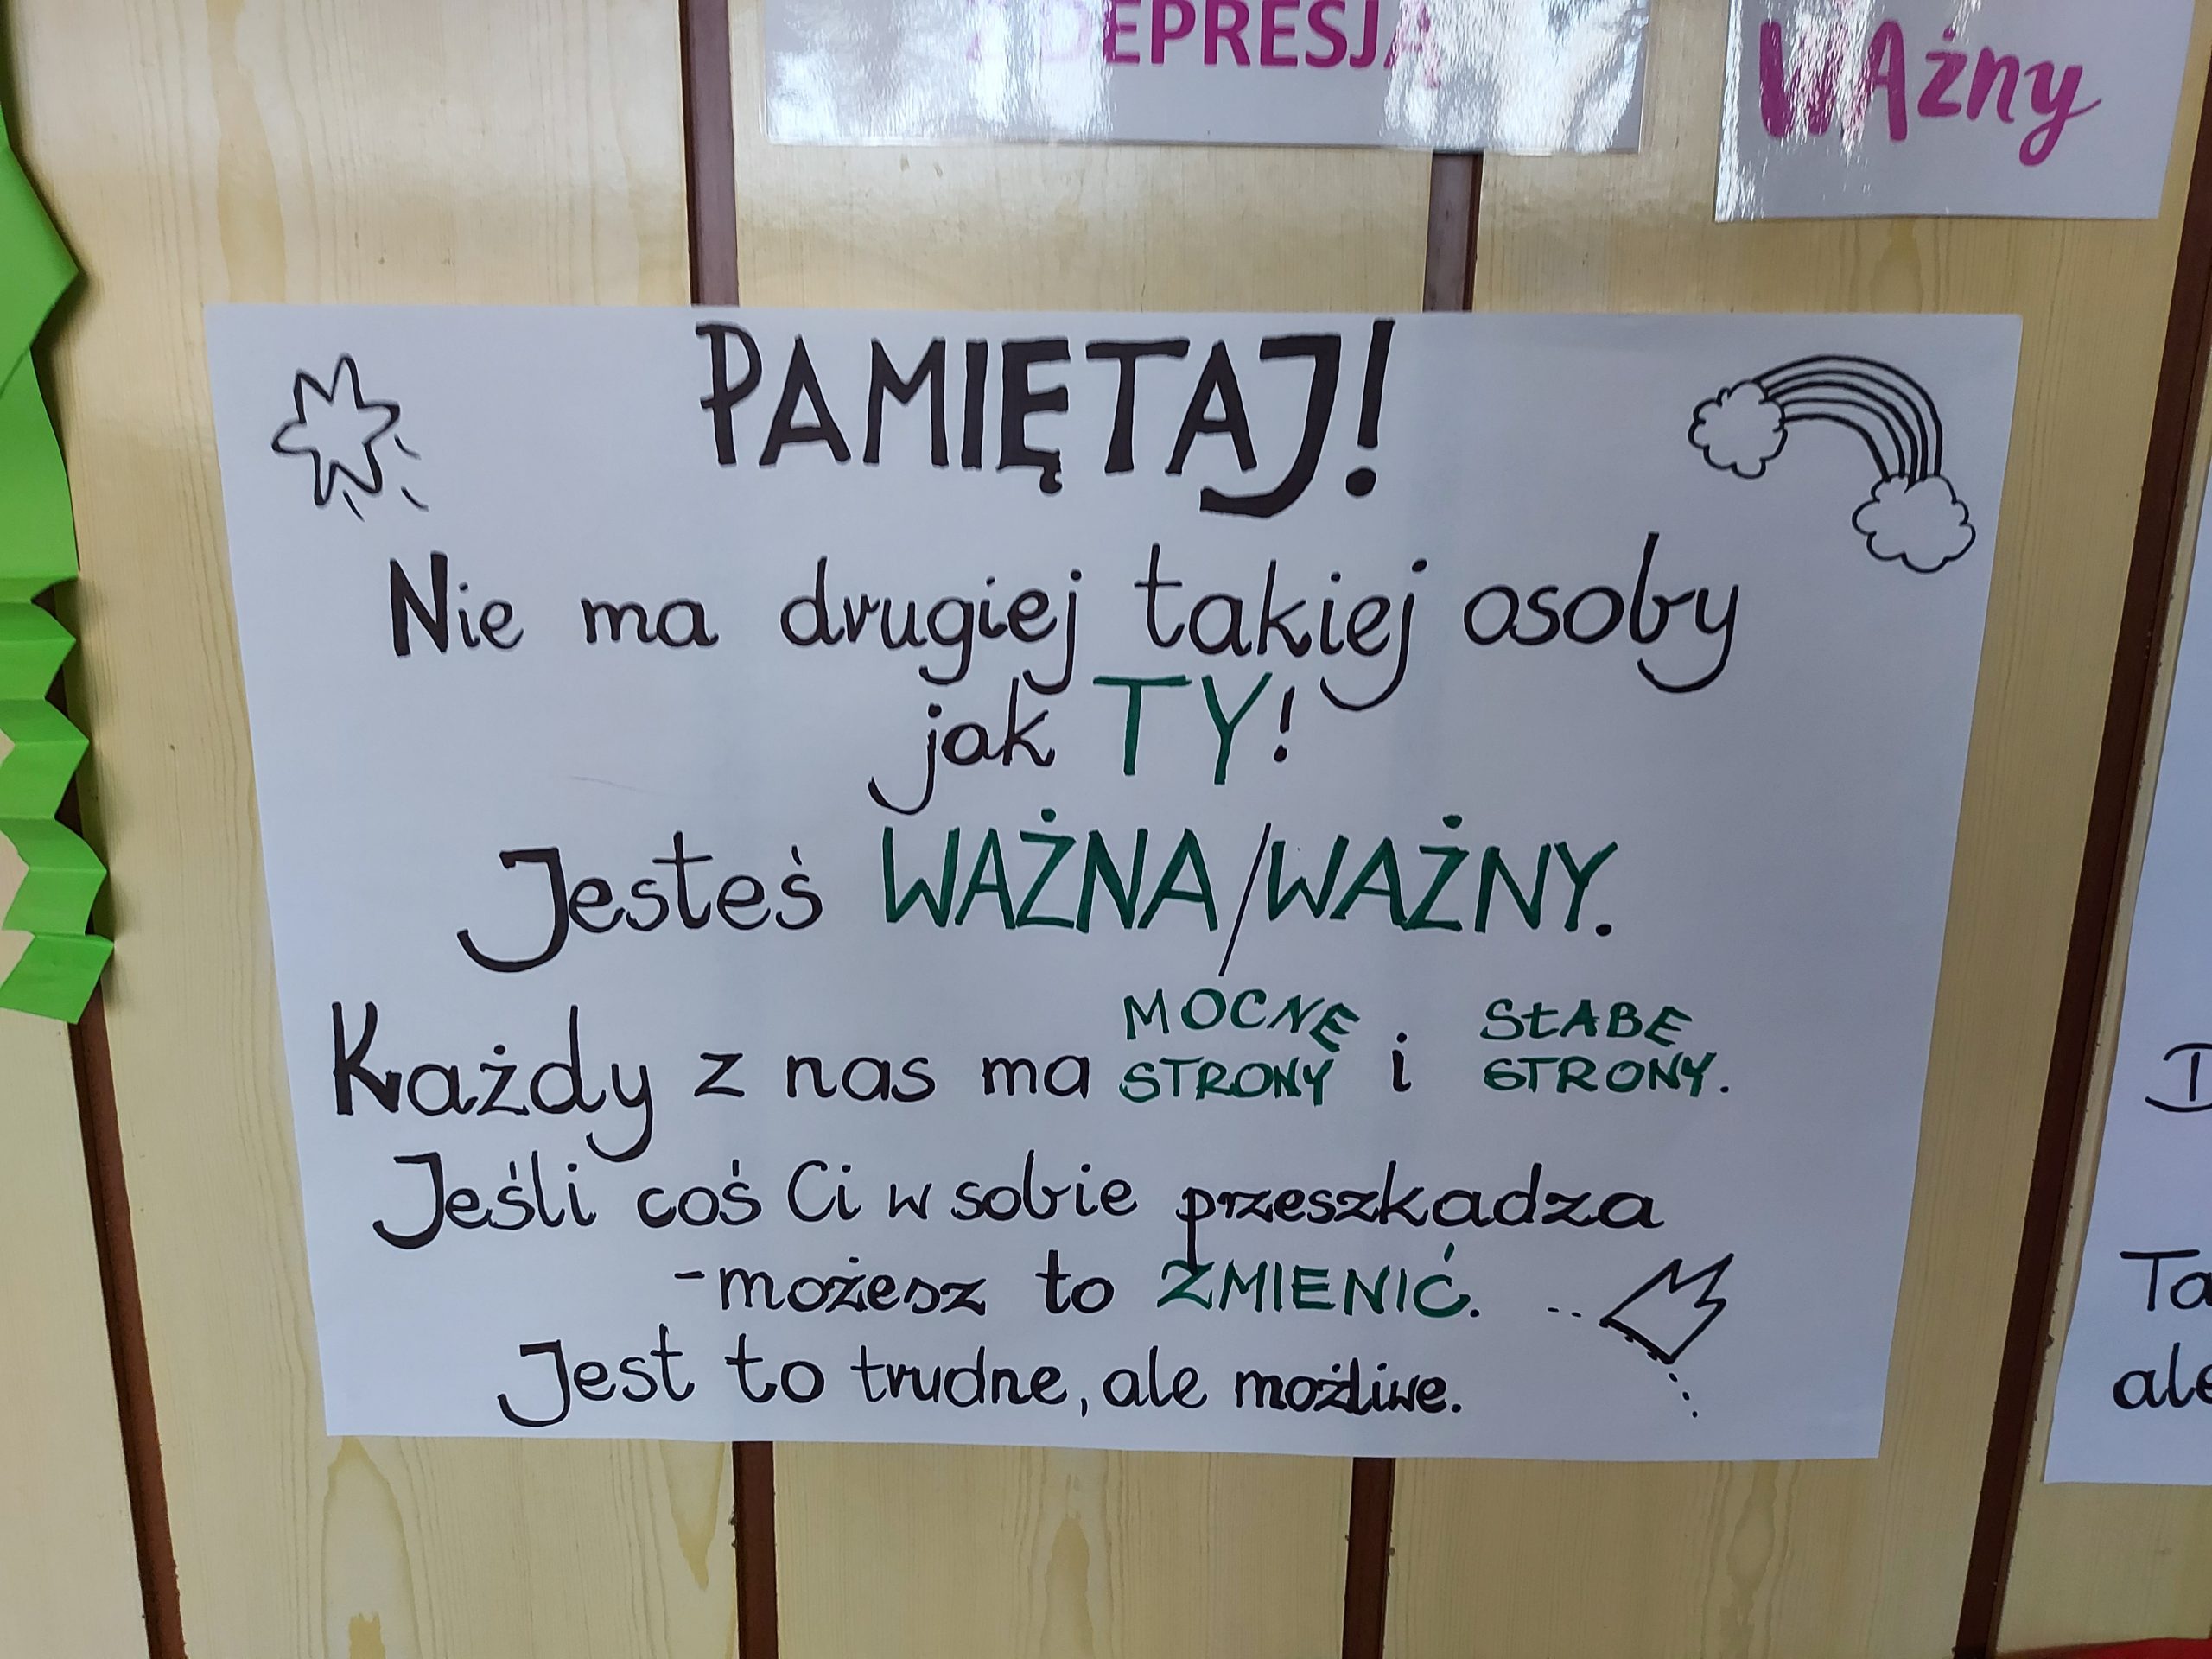 DEPRESJĄ
WAżny
PAMIĘTAJ!
Nie ma drugiej takiej osoby
jak TY!
Jesteś WAŻNA/WAŻNY.
Każdy z nas ma MOCNE STRONY i SŁABE STRONY.
Jeśli coś Ci w sobie przeszkadza
-możesz to ZMIENIĆ.
Jest to trudne, ale możliwe.
Ta